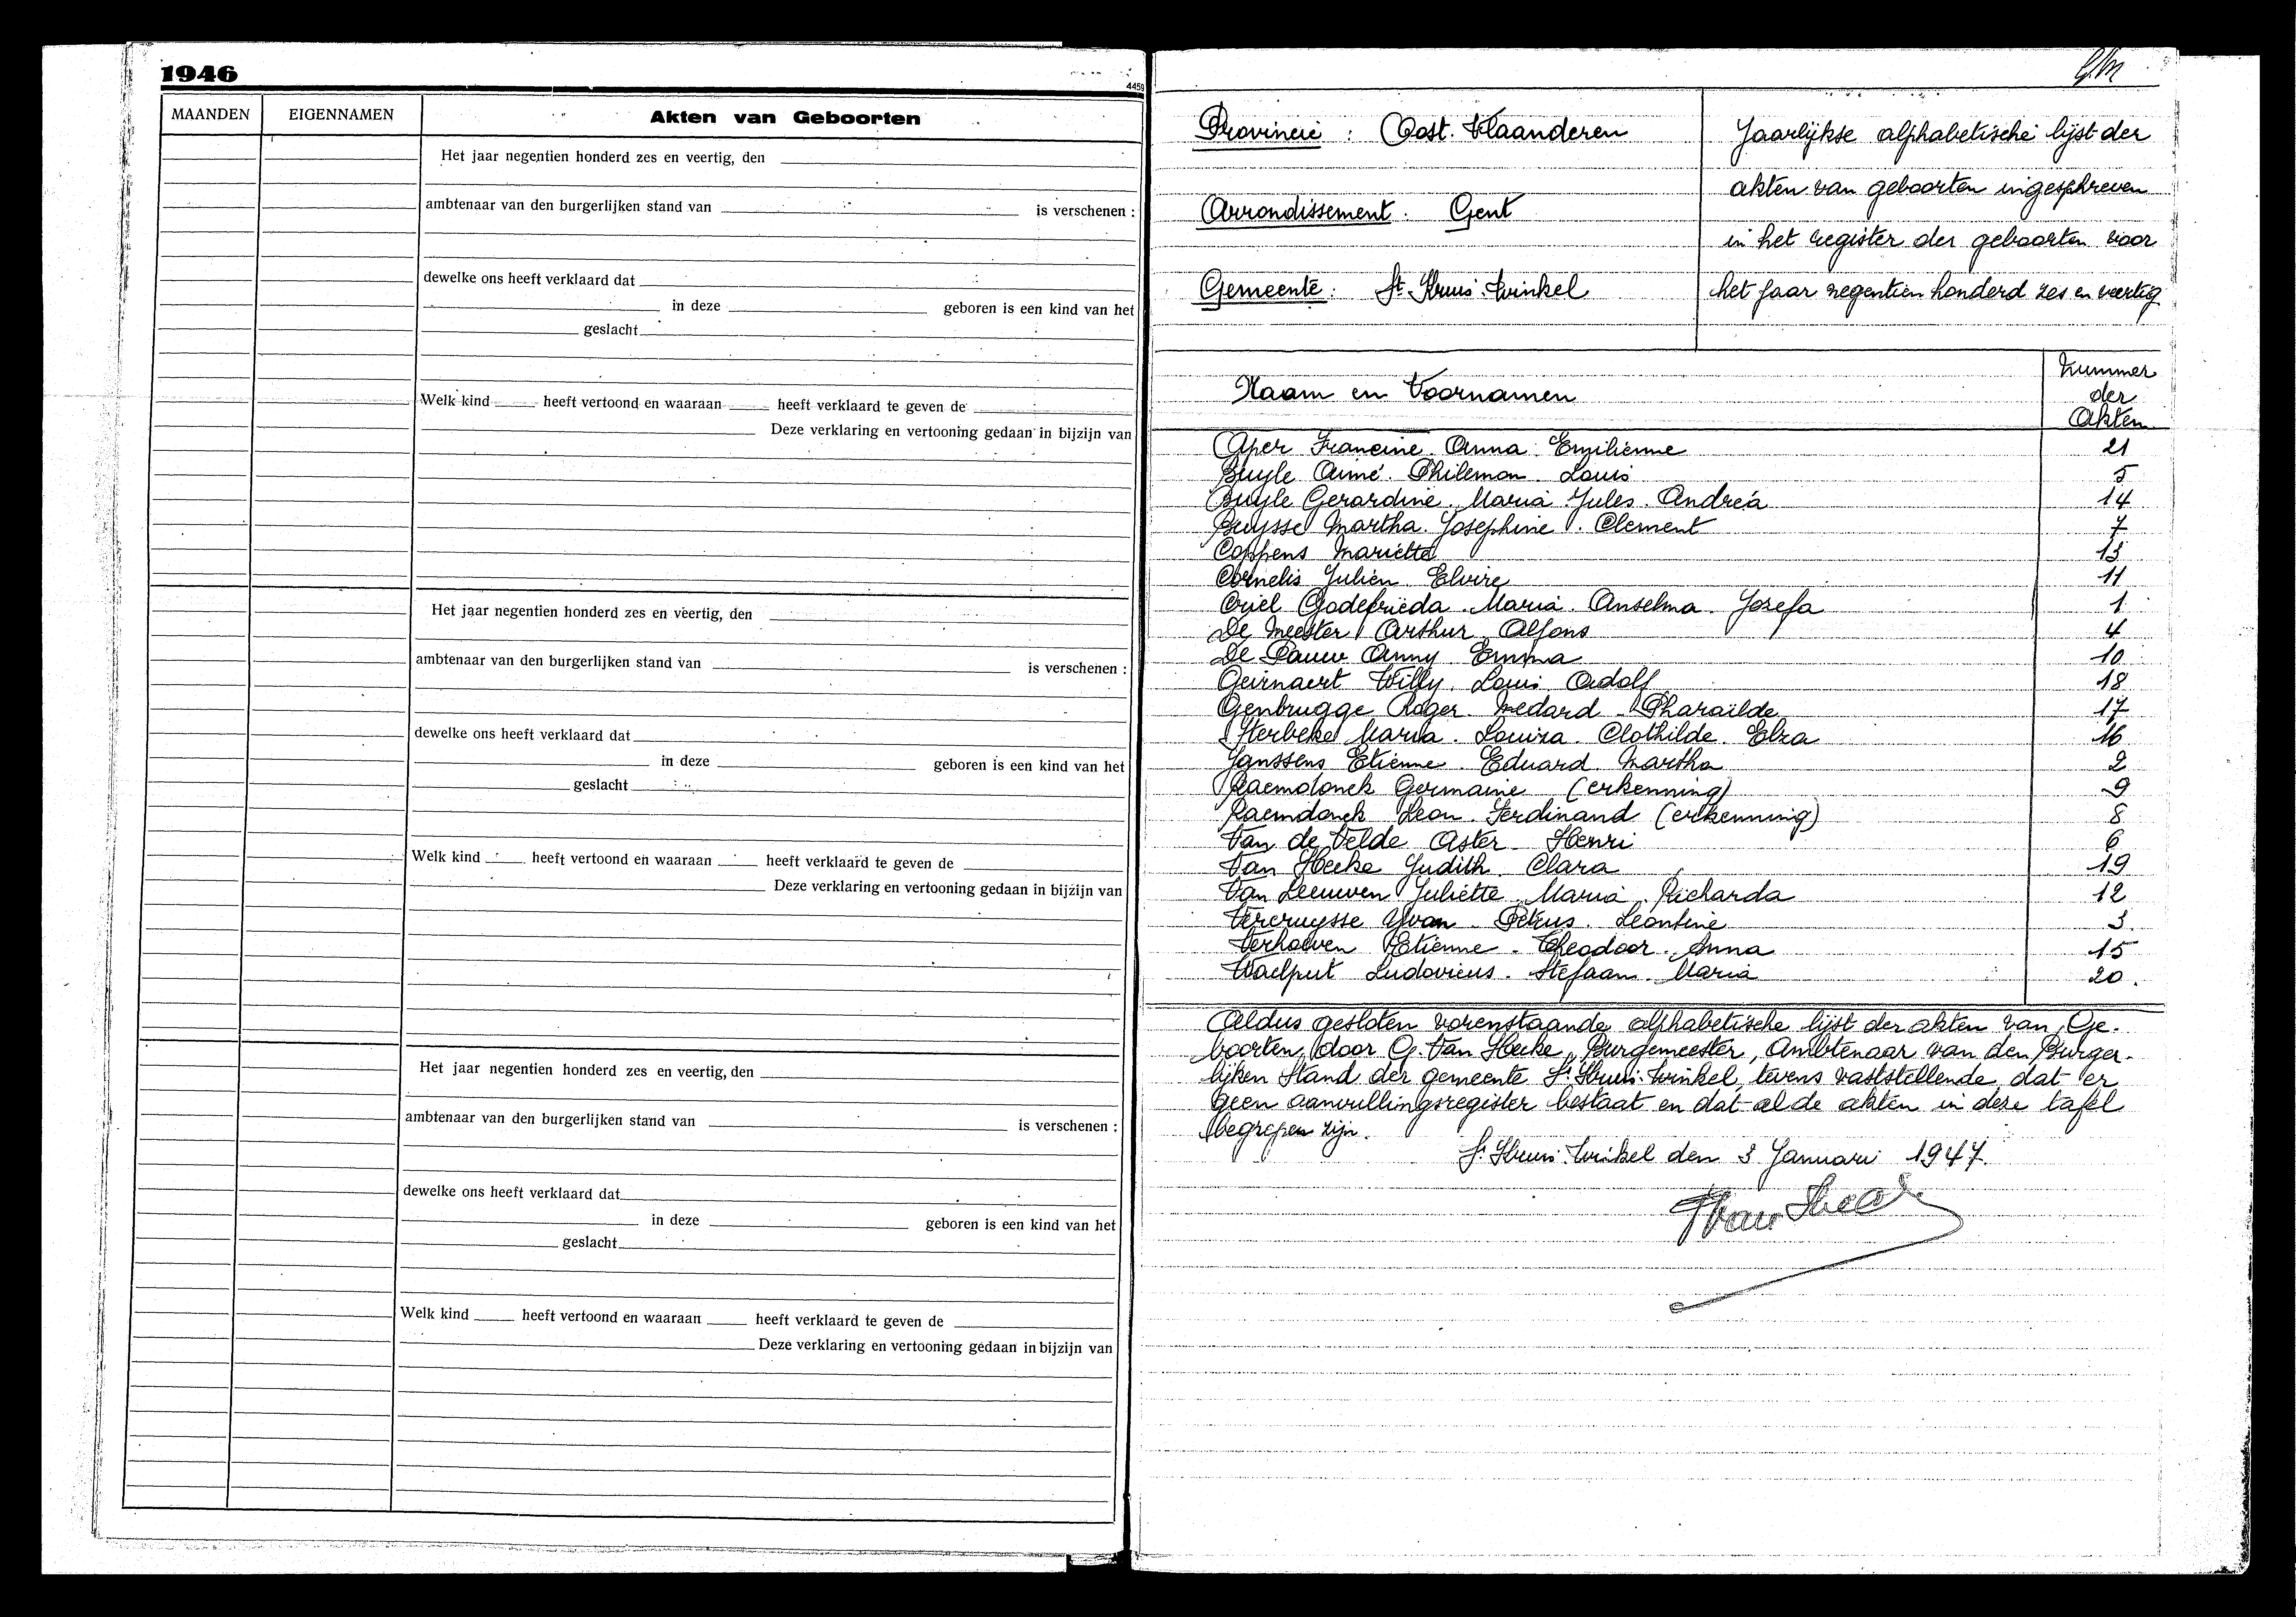 1946
4459
MAANDEN EIGENNAMEN Akten van Geboorten
Het jaar negentien honderd zes en veertig, den
ambtenaar van den burgerlijken stand van is verschenen :
dewelke ons heeft verklaard dat
in deze geboren is een kind van het
geslacht
Welk kind heeft vertoond en waaraan heeft verklaard te geven de
Deze verklaring en vertooning gedaan in bijzijn van
Het jaar negentien honderd zes en veertig, den
ambtenaar van den burgerlijken stand van is verschenen :
dewelke ons heeft verklaard dat
in deze geboren is een kind van het
geslacht
Welk kind heeft vertoond en waaraan heeft verklaard te geven de
Deze verklaring en vertooning gedaan in bijzijn van
Het jaar negentien honderd zes en veertig, den
ambtenaar van den burgerlijken stand van is verschenen :
dewelke ons heeft verklaard dat
in deze geboren is een kind van het
geslacht
Welk kind heeft vertoond en waaraan heeft verklaard te geven de
Deze verklaring en vertooning gedaan in bijzijn van
Provincie : Oost-Vlaanderen
Arrondissement. Gent
Gemeente : St. Kruis-Winkel
Jaarlijkse alphabetische lijst der
akten van geboorten ingeschreven
in het register der geboorten voor
het jaar negentien honderd zes en veertig
Naam en Voornamen
Nummer
der
Akten
Aper Francine Anna Emilienne 21
Buyle Aimé Philemon Louis 5
Buyle Gerardine Maria Jules Andrea 14
Buysse Martha Josephine Clement 7
Coppens Mariette 13
Cornelis Julien Elvire 11
Criel Godefrieda Maria Anselma Josefa 1
De Meester Arthur Alfons 4
De Pauw Anny Emma 10
Geirnaert Willy Louis Adolf 18
Genbrugge Roger Medard Pharaïlde 17
Herbeke Maria Louisa Clothilde Elza 16
Janssens Etienne Eduard Martha 2
Raemdonck Germaine (erkenning) 9
Raemdonck Leon Ferdinand (erkenning) 8
Van de Velde Aster Henri 6
Van Hecke Judith Clara 19
Van Leeuwen Juliette Maria Richarda 12
Vercruysse Yvan Petrus Leontine 3
Verhoeven Etienne Theodoor Anna 15
Waelput Ludovicus Stefaan Maria 20
Aldus gesloten vorenstaande alphabetische lijst der akten van Ge-
boorten door G. Van Hecke, Burgemeester, Ambtenaar van den Burger-
lijken Stand der gemeente St. Kruis-Winkel, tevens vaststellende dat er
geen aanvullingsregister bestaat en dat al de akten in deze tafel
begrepen zijn.
St. Kruis-Winkel den 3 Januari 1947.